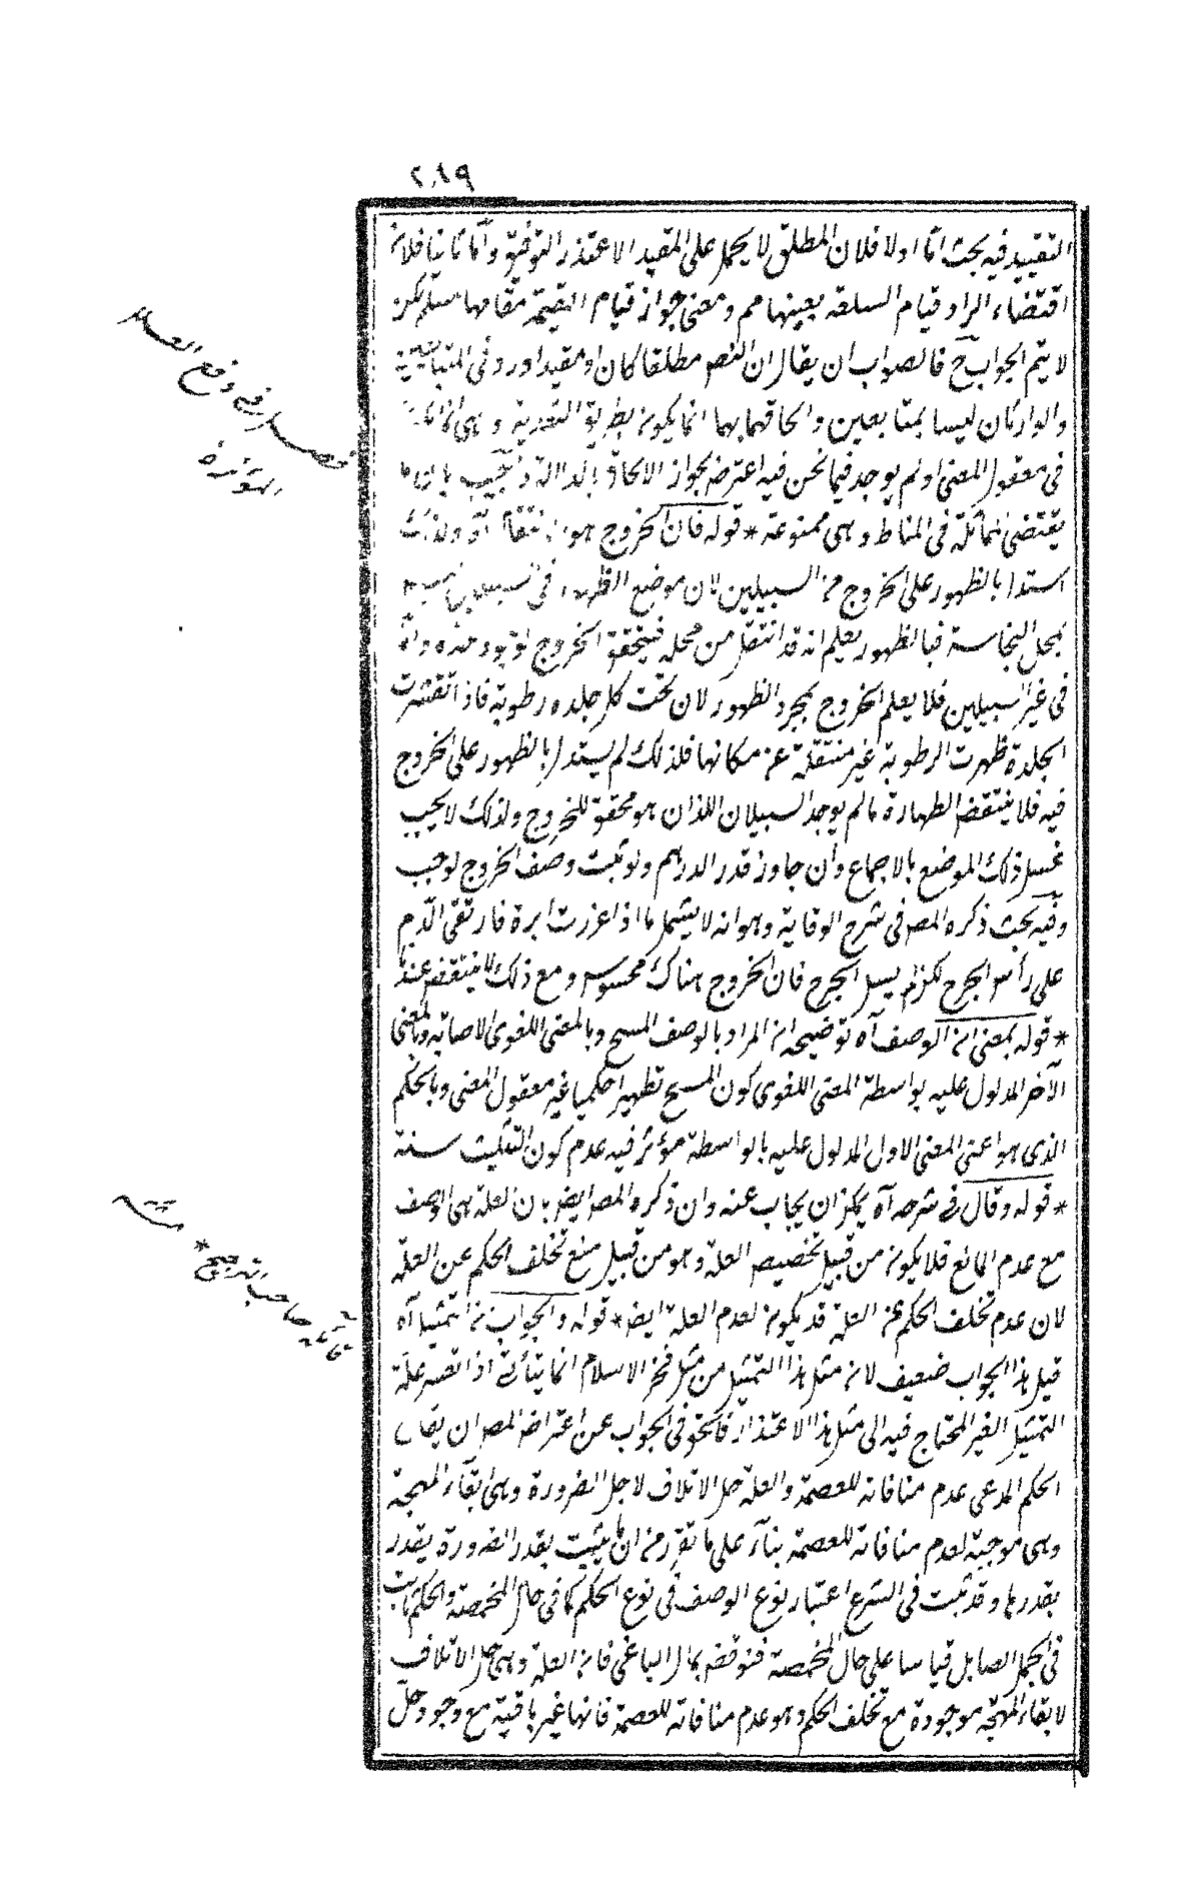 ٢٨٩
التقييد فيه بحث اما اولا فلان المطلق لا يحمل على المقيد الا عند تعذر التوفيق واما ثانيا فلان
اقتضاء الراد قيام السلعة بعينها مم ومعنى جواز قيام القيمة مقامها مسلم لكن
لا يتم الجواب ح فالصواب ان يقال ان النص مطلقا كان او مقيدا ورد فى المتبايعين
والوارثان ليسا بمتابعين والحاقهما بهما انما يكون بطريق التعدية وهى انما
فى معقول المعنى ولم يوجد فيما نحن فيه اعترض بجواز الالحاق بالدلالة واجيب بانها
يقتضى المماثلة فى المناط وهى ممنوعة * قوله فان الخروج هو الانتقال آه ولذلك
استدل بالظهور على الخروج من السبيلين لان موضع الظهور فى السبيلين ليس
بمحل النجاسة فبالظهور يعلم انه قد انتقل من محله فيتحقق الخروج لوجود حده واما
فى غير السبيلين فلا يعلم الخروج بمجرد الظهور لان تحت كل جلده رطوبة فاذا تقشرت
الجلدة ظهرت الرطوبة غير منتقلة عن مكانها فلذلك لم يستدل بالظهور على الخروج
فيه فلا ينتقض الطهارة مالم يوجد السيلان اللذان هو محقق للخروج ولذلك لا يجب
غسل ذلك الموضع بالاجماع وان جاوز قدر الدرهم ولو ثبت وصف الخروج لوجب
وفيه بحث ذكره المصـ فى شرح الوقاية وهو انه لا يشمل ما اذا غرزت ابرة فارتقى الدم
على رأس الجرح لكن لم يسل الجرح فان الخروج هناك محسوس ومع ذلك لا ينتقض عندنا
* قوله بمعنى ان الوصف آه توضيحه ان المراد بالوصف المسح وبالمعنى اللغوى الاصابة وبالمعنى
الآخر المدلول عليه بواسطة المعنى اللغوى كون المسح تطهيرا حكميا غير معقول المعنى وبالحكم
الذى هو اعنى المعنى الاول المدلول عليه بالواسطة مؤثر فيه عدم كون التثليث سنة
* قوله وقال فى شرحه آه يمكن ان يجاب عنه وان ذكره المصـ ايضا بان العلة هى الوصف
مع عدم المانع فلا يكون من قبيل تخصيص العلة وهو من قبيل منع تخلف الحكم عن العلة
لان عدم تخلف الحكم عن العلة قد يكون لعدم العلة ايضا * قوله والجواب عن التمثيل آه
قيل هذا الجواب ضعيف لان مثل هذا التمثيل من مثل فخر الاسلام انما يتأتى اذا تعسر علة
التمثيل الغير المحتاج فيه الى مثل هذا الاعتذار فالحق فى الجواب عن اعتراض المصـ ان يقال
الحكم المدعى عدم منافاته للعصمة والعلة حل الاتلاف لاجل الضرورة وهى ابقاء المهجة
وهى موجبة لعدم منافاته للعصمة بناء على ما تقرر من ان ما يثبت بقدر الضرورة يقدر
بقدرها وقد ثبت فى الشرع اعتبار نوع الوصف فى نوع الحكم كما فى حال المخمصة والحكم ثابت
فى الجمل الصايل قياسا على حال المخمصة فنوقض بمال الباغى فان العلة وهى حل الاتلاف
لابقاء المهجة موجودة مع تخلف الحكم وهو عدم منافاته للعصمة فانها غير باقية مع وجود حل
فصل فى دفع العلل
المؤثرة
قائله صاحب الترجيح *